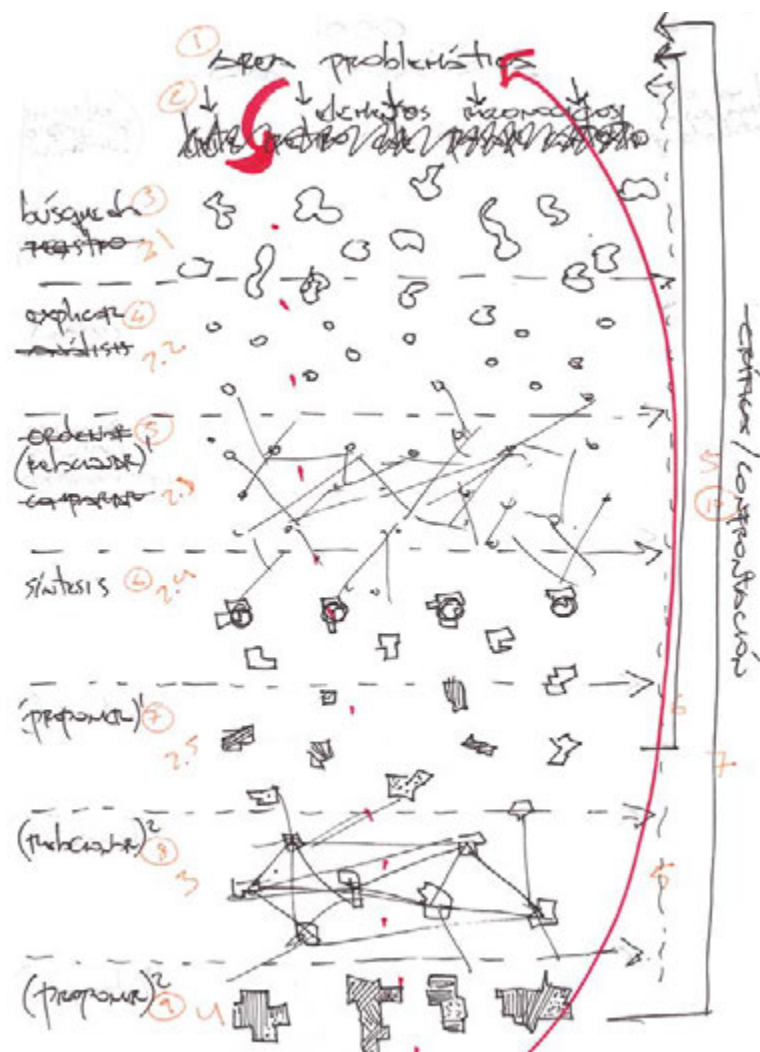 ① area problemática
② elementos reconocidos
búsqueda ③
registro 2.1
explicar ④
análisis 2.2
ordenar ⑤
(relacionar)¹
comparar 2.3
síntesis ⑥ 2.4
(proponer)¹ ⑦
2.5
(relacionar)² ⑧
3
(proponer)² ⑨ 4
crítica/confrontación
5
⑩
6
7